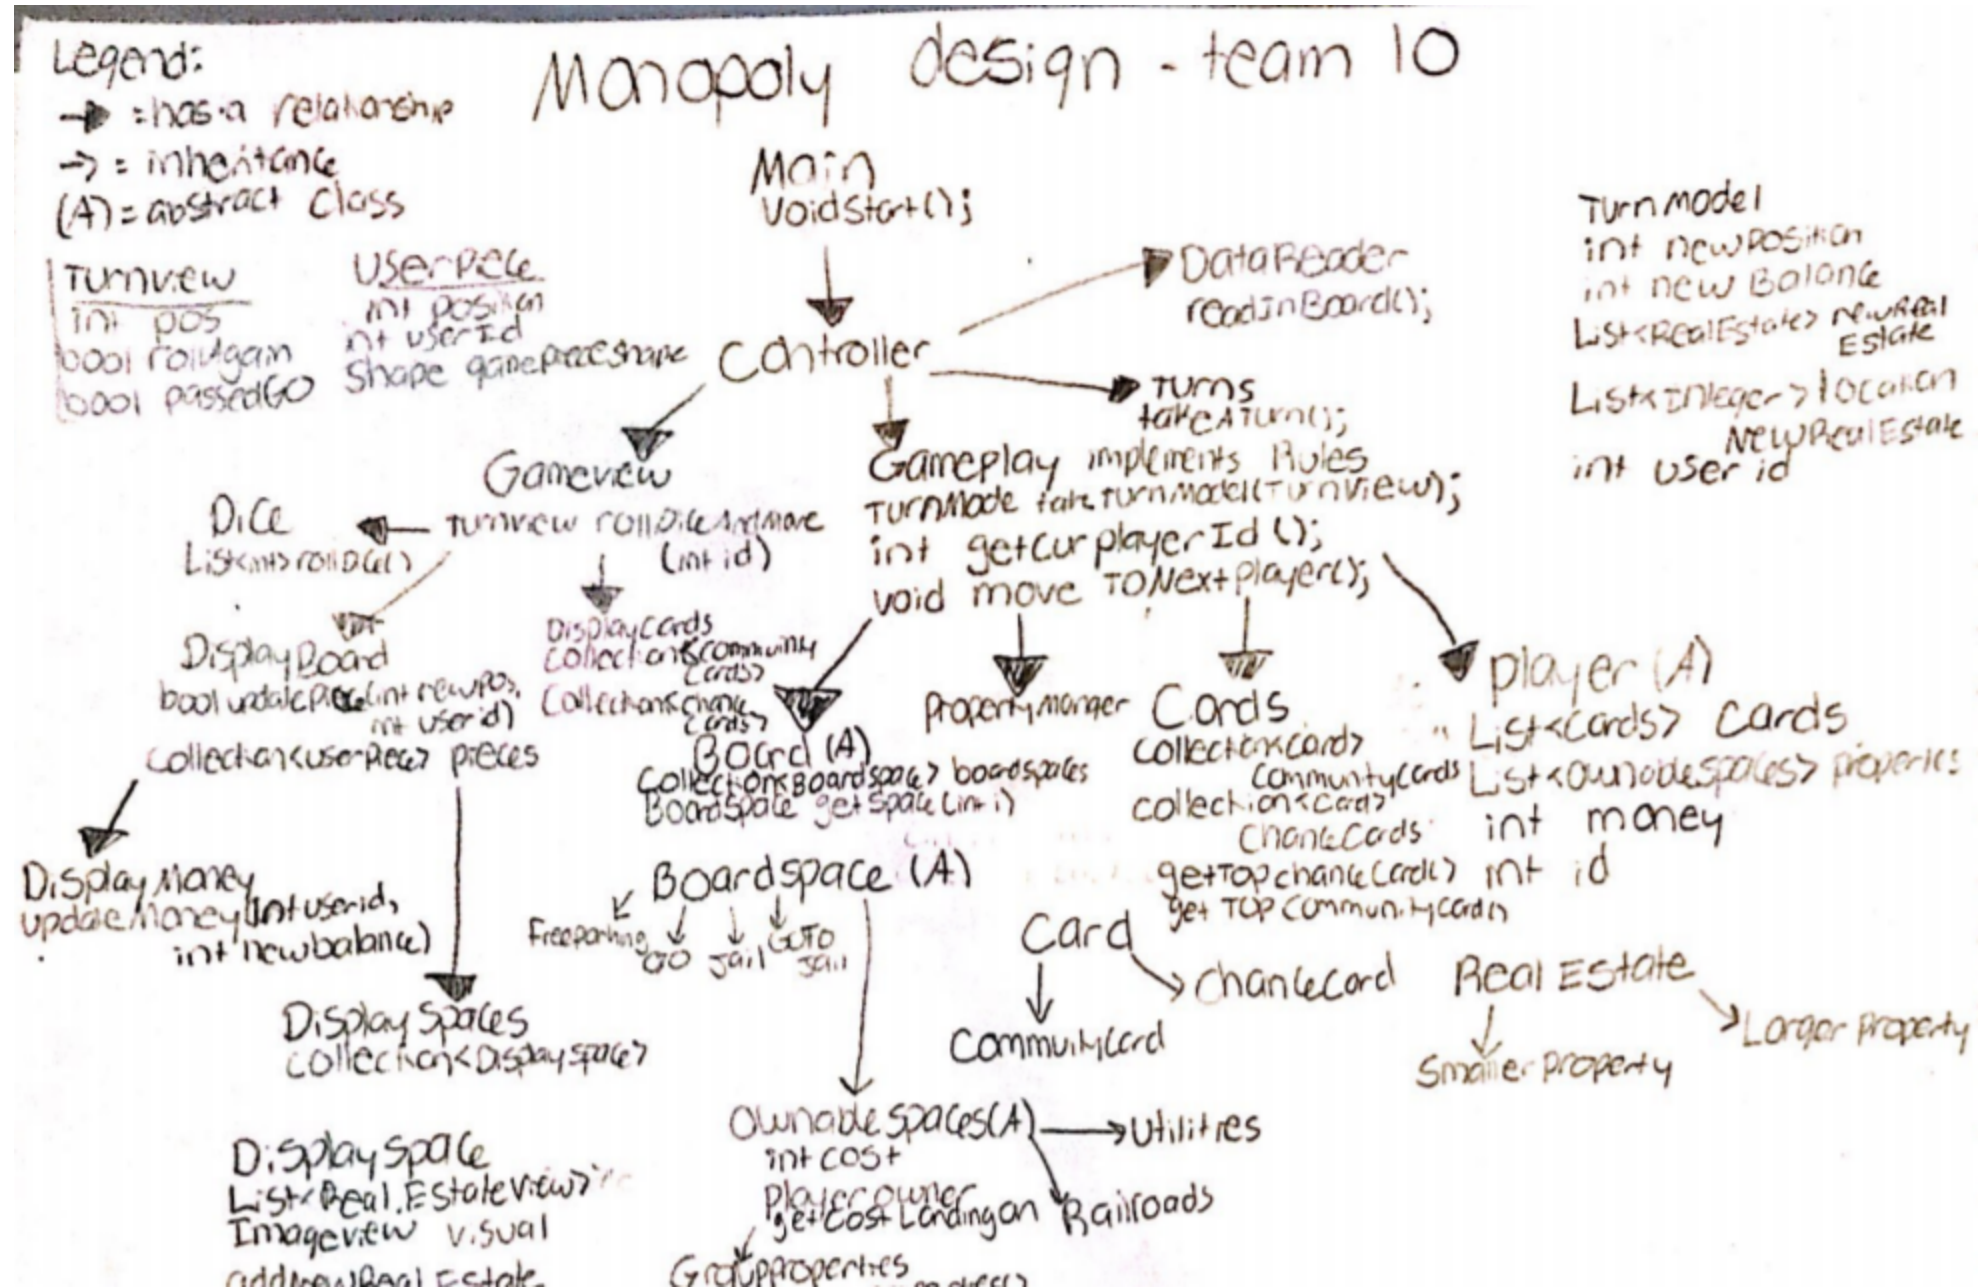 Monopoly design - team 10
Legend:
= has a relationship
-> = inheritance
(A) = abstract class
Turnview
int pos
bool rollAgain
bool passedGO
Userpiece
int position
int userId
Shape gamepieceshape
Main
void start();
Controller
DataReader
readInBoard();
Turns
takeATurn();
Turnmodel
int newposition
int new Balance
List<RealEstate> newReal
Estate
List<Integer> location
NewRealEstate
int user id
Gameview
Turnview rollDiceAndMove
(int id)
Dice
List<int> rollDice()
Gameplay implements Rules
TurnMode take TurnModel(Turnview);
int getcurplayerId();
void move TONextplayer();
Display Board
bool updatepiece(int newpos,
int userid)
collection<userpiece> pieces
DisplayCards
Collection<community
Cards>
Collection<chance
Cards>
Board (A)
Collection<Boardspace> boardspaces
Boardspace getspace(int i)
Propertymanger
Cards
collection<card>
communitycards
collection<card>
chancecards
getTopchancecard()
get TOP communitycard()
player (A)
List<cards> cards
List<ownablespaces> properties
int money
int id
Display Money
updateMoney(int userid,
int newbalance)
Boardspace (A)
Freeparking
GO
Jail
GOTO
Jail
Card
chancecard
Commuitycard
Real Estate
Smaller property
Larger property
Display Spaces
collection<Displayspace>
ownable spaces(A)
int cost
player owner
getcost Landingon
Utilitres
Railroads
Displayspace
List<Real.Estateview>
Imageview visual
addnewReal Estate
Groupproperties